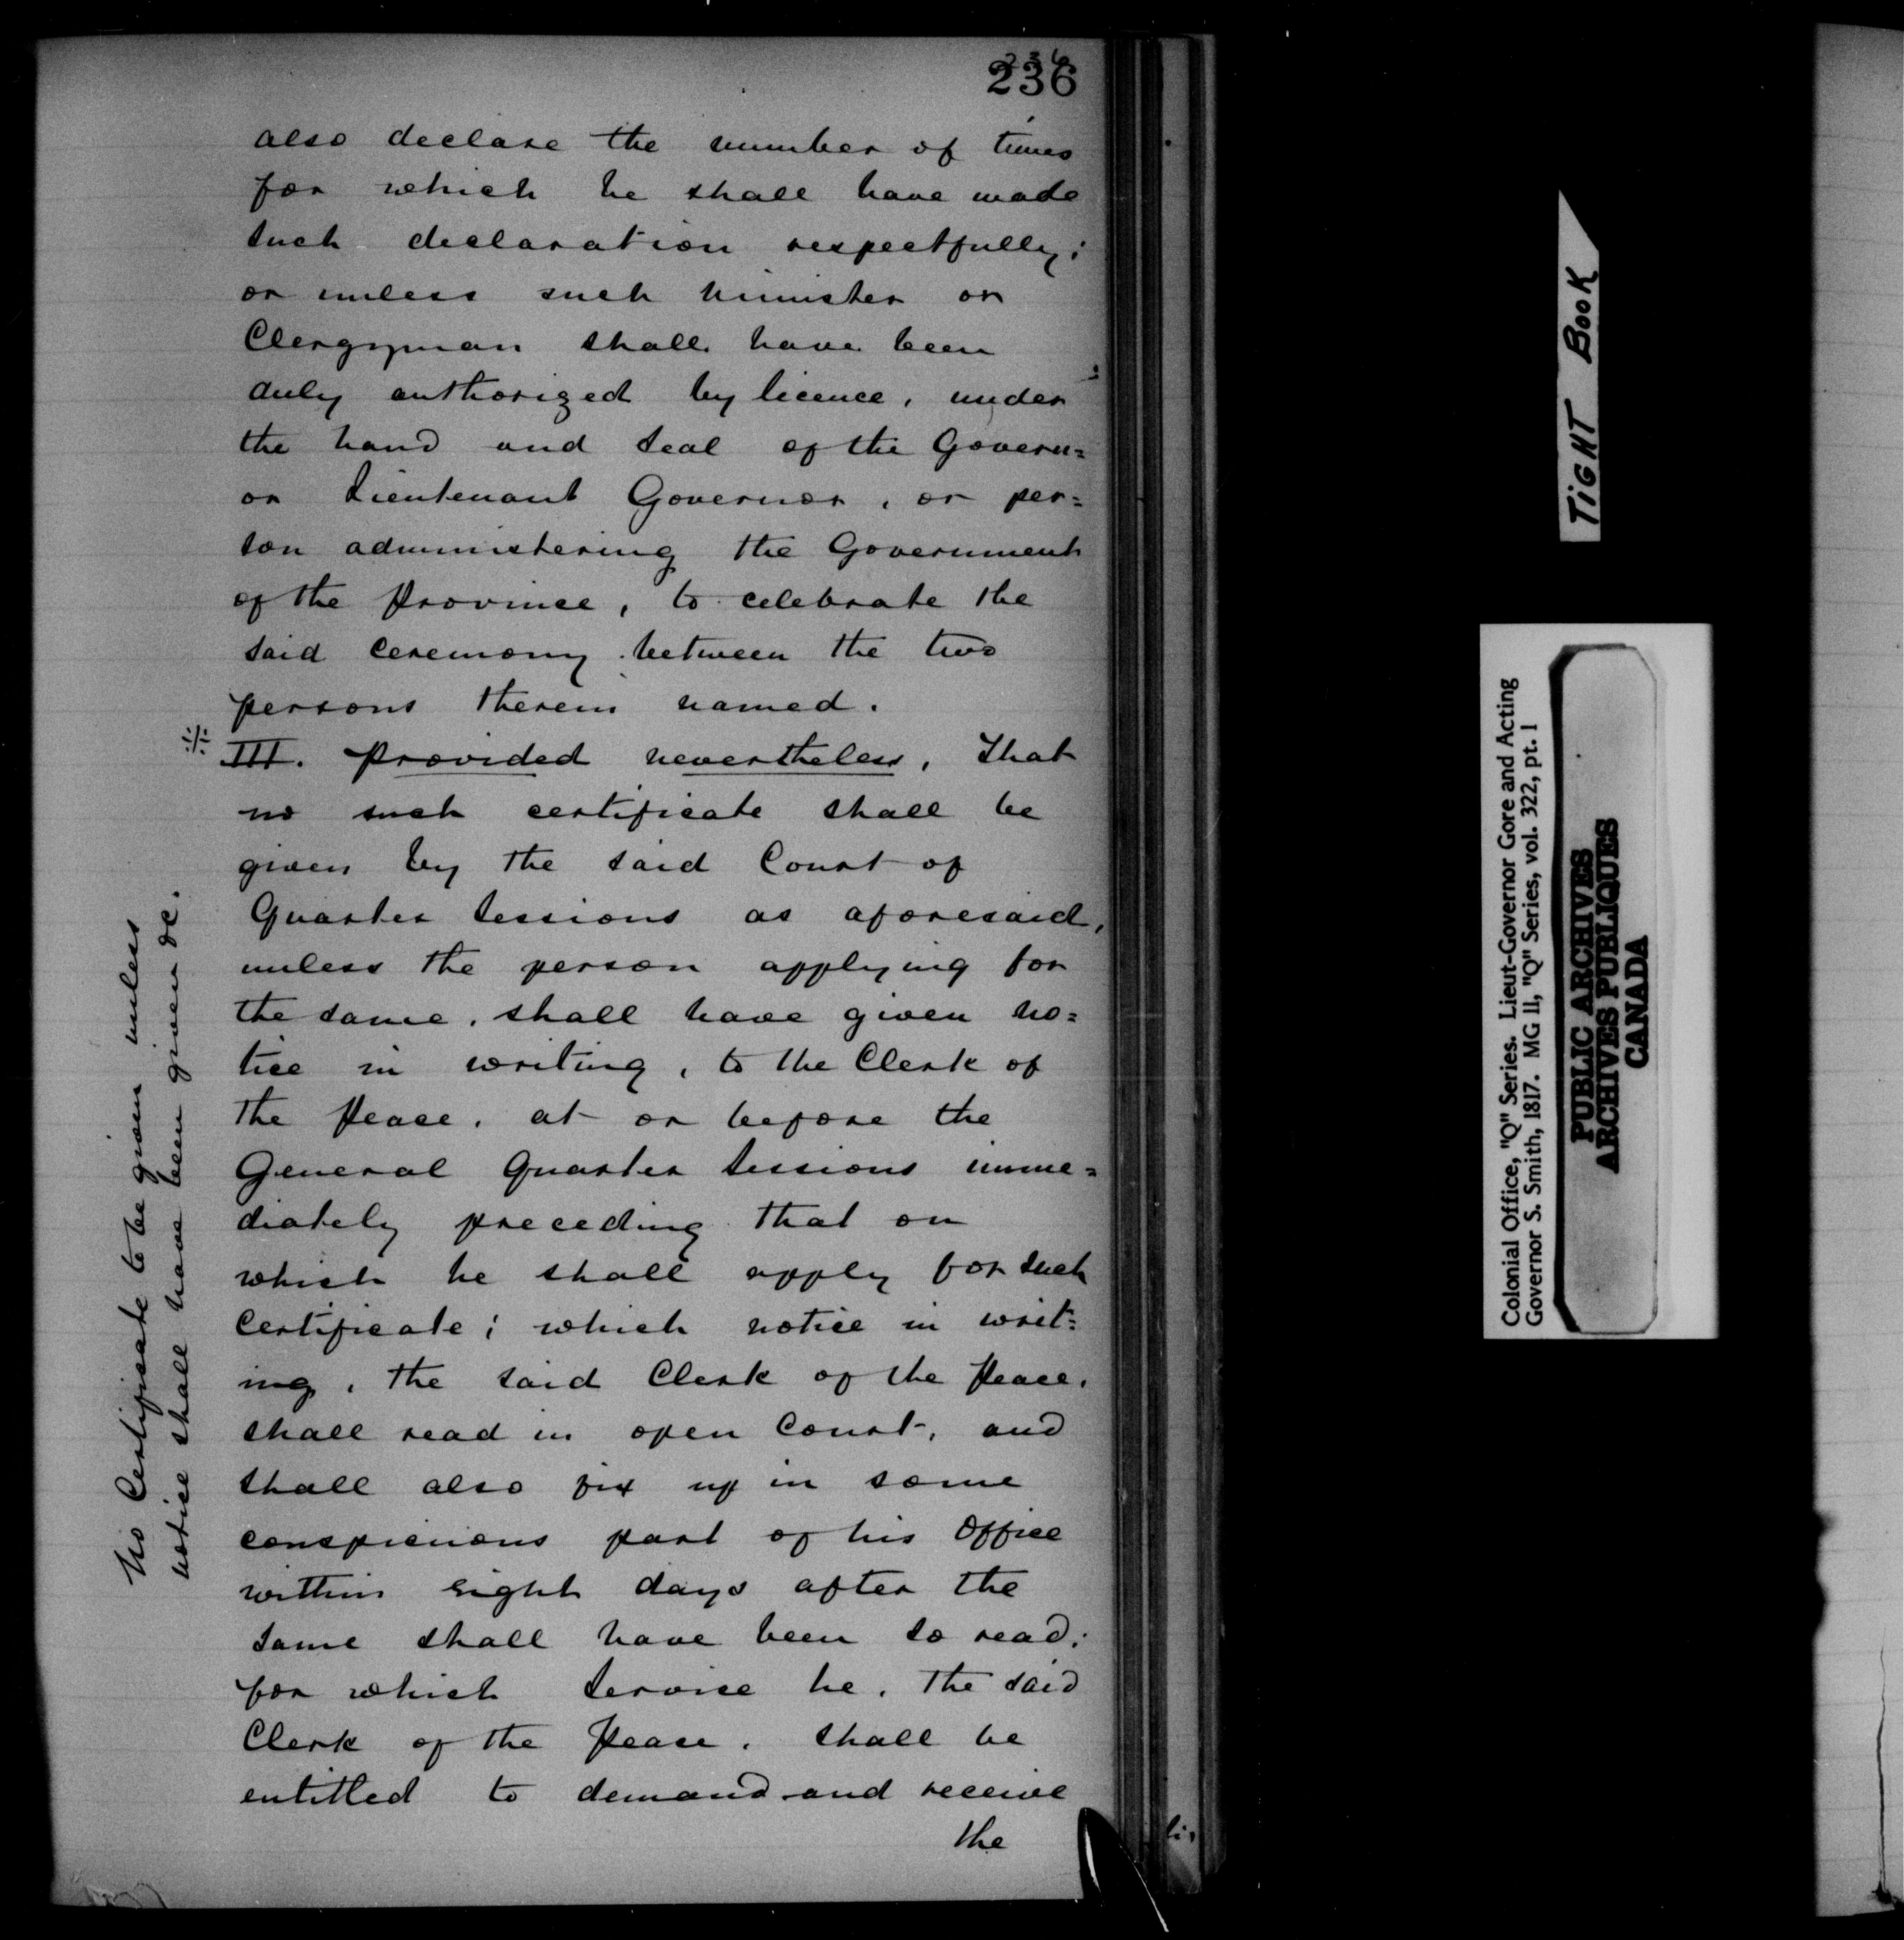 236
also declare the number of times
for which he shall have made
such declaration respectfully;
or unless such minister or
Clergyman shall have been
duly authorized by licence, under
the hand and seal of the Govern=
or Lieutenant Governor, or per=
son administering the Government
of the Province, to celebrate the
said ceremony between the two
persons therein named.
III. Provided nevertheless, That
no such certificate shall be
given by the said Court of
Quarter Sessions as aforesaid,
unless the person applying for
the same, shall have given no=
tice in writing, to the Clerk of
the Peace, at or before the
General Quarter Sessions imme=
diately preceding that on
which he shall apply for such
Certificate; which notice in writ=
ing, the said Clerk of the Peace,
shall read in open Court, and
shall also fix up in some
conspicuous part of his Office
within eight days after the
same shall have been so read;
for which service he, the said
Clerk of the Peace, shall be
entitled to demand and receive
the
No Certificate to be given unless
notice shall have been given &c.
TIGHT BOOK
Colonial Office, "Q" Series. Lieut-Governor Gore and Acting
Governor S. Smith, 1817. MG 11, "Q" Series, vol. 322, pt. 1
PUBLIC ARCHIVES
ARCHIVES PUBLIQUES
CANADA